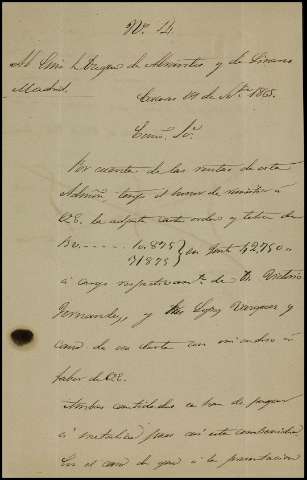 Nº. 14
Al Exmo. Sr. Duque de Abrantes y de Linares
Madrid.
Cuevas 14 de Nbre. 1865.
Excmo. Sr.
Por cuenta de las rentas de esta
Admón. tengo el honor de remitir á
V.E. la adjunta carta orden y letra de
Rv. 10.875
31875 } en junto 42,750
á cargo respectivamte. de D. Antonio
Fernandez, y Lopez Vazquez y
de esa Corte con mi endoso á
favor de V.E.
Ambas cantidades se han de pagar
á metalico pues así esta convenido.
En el caso de que á la presentacion